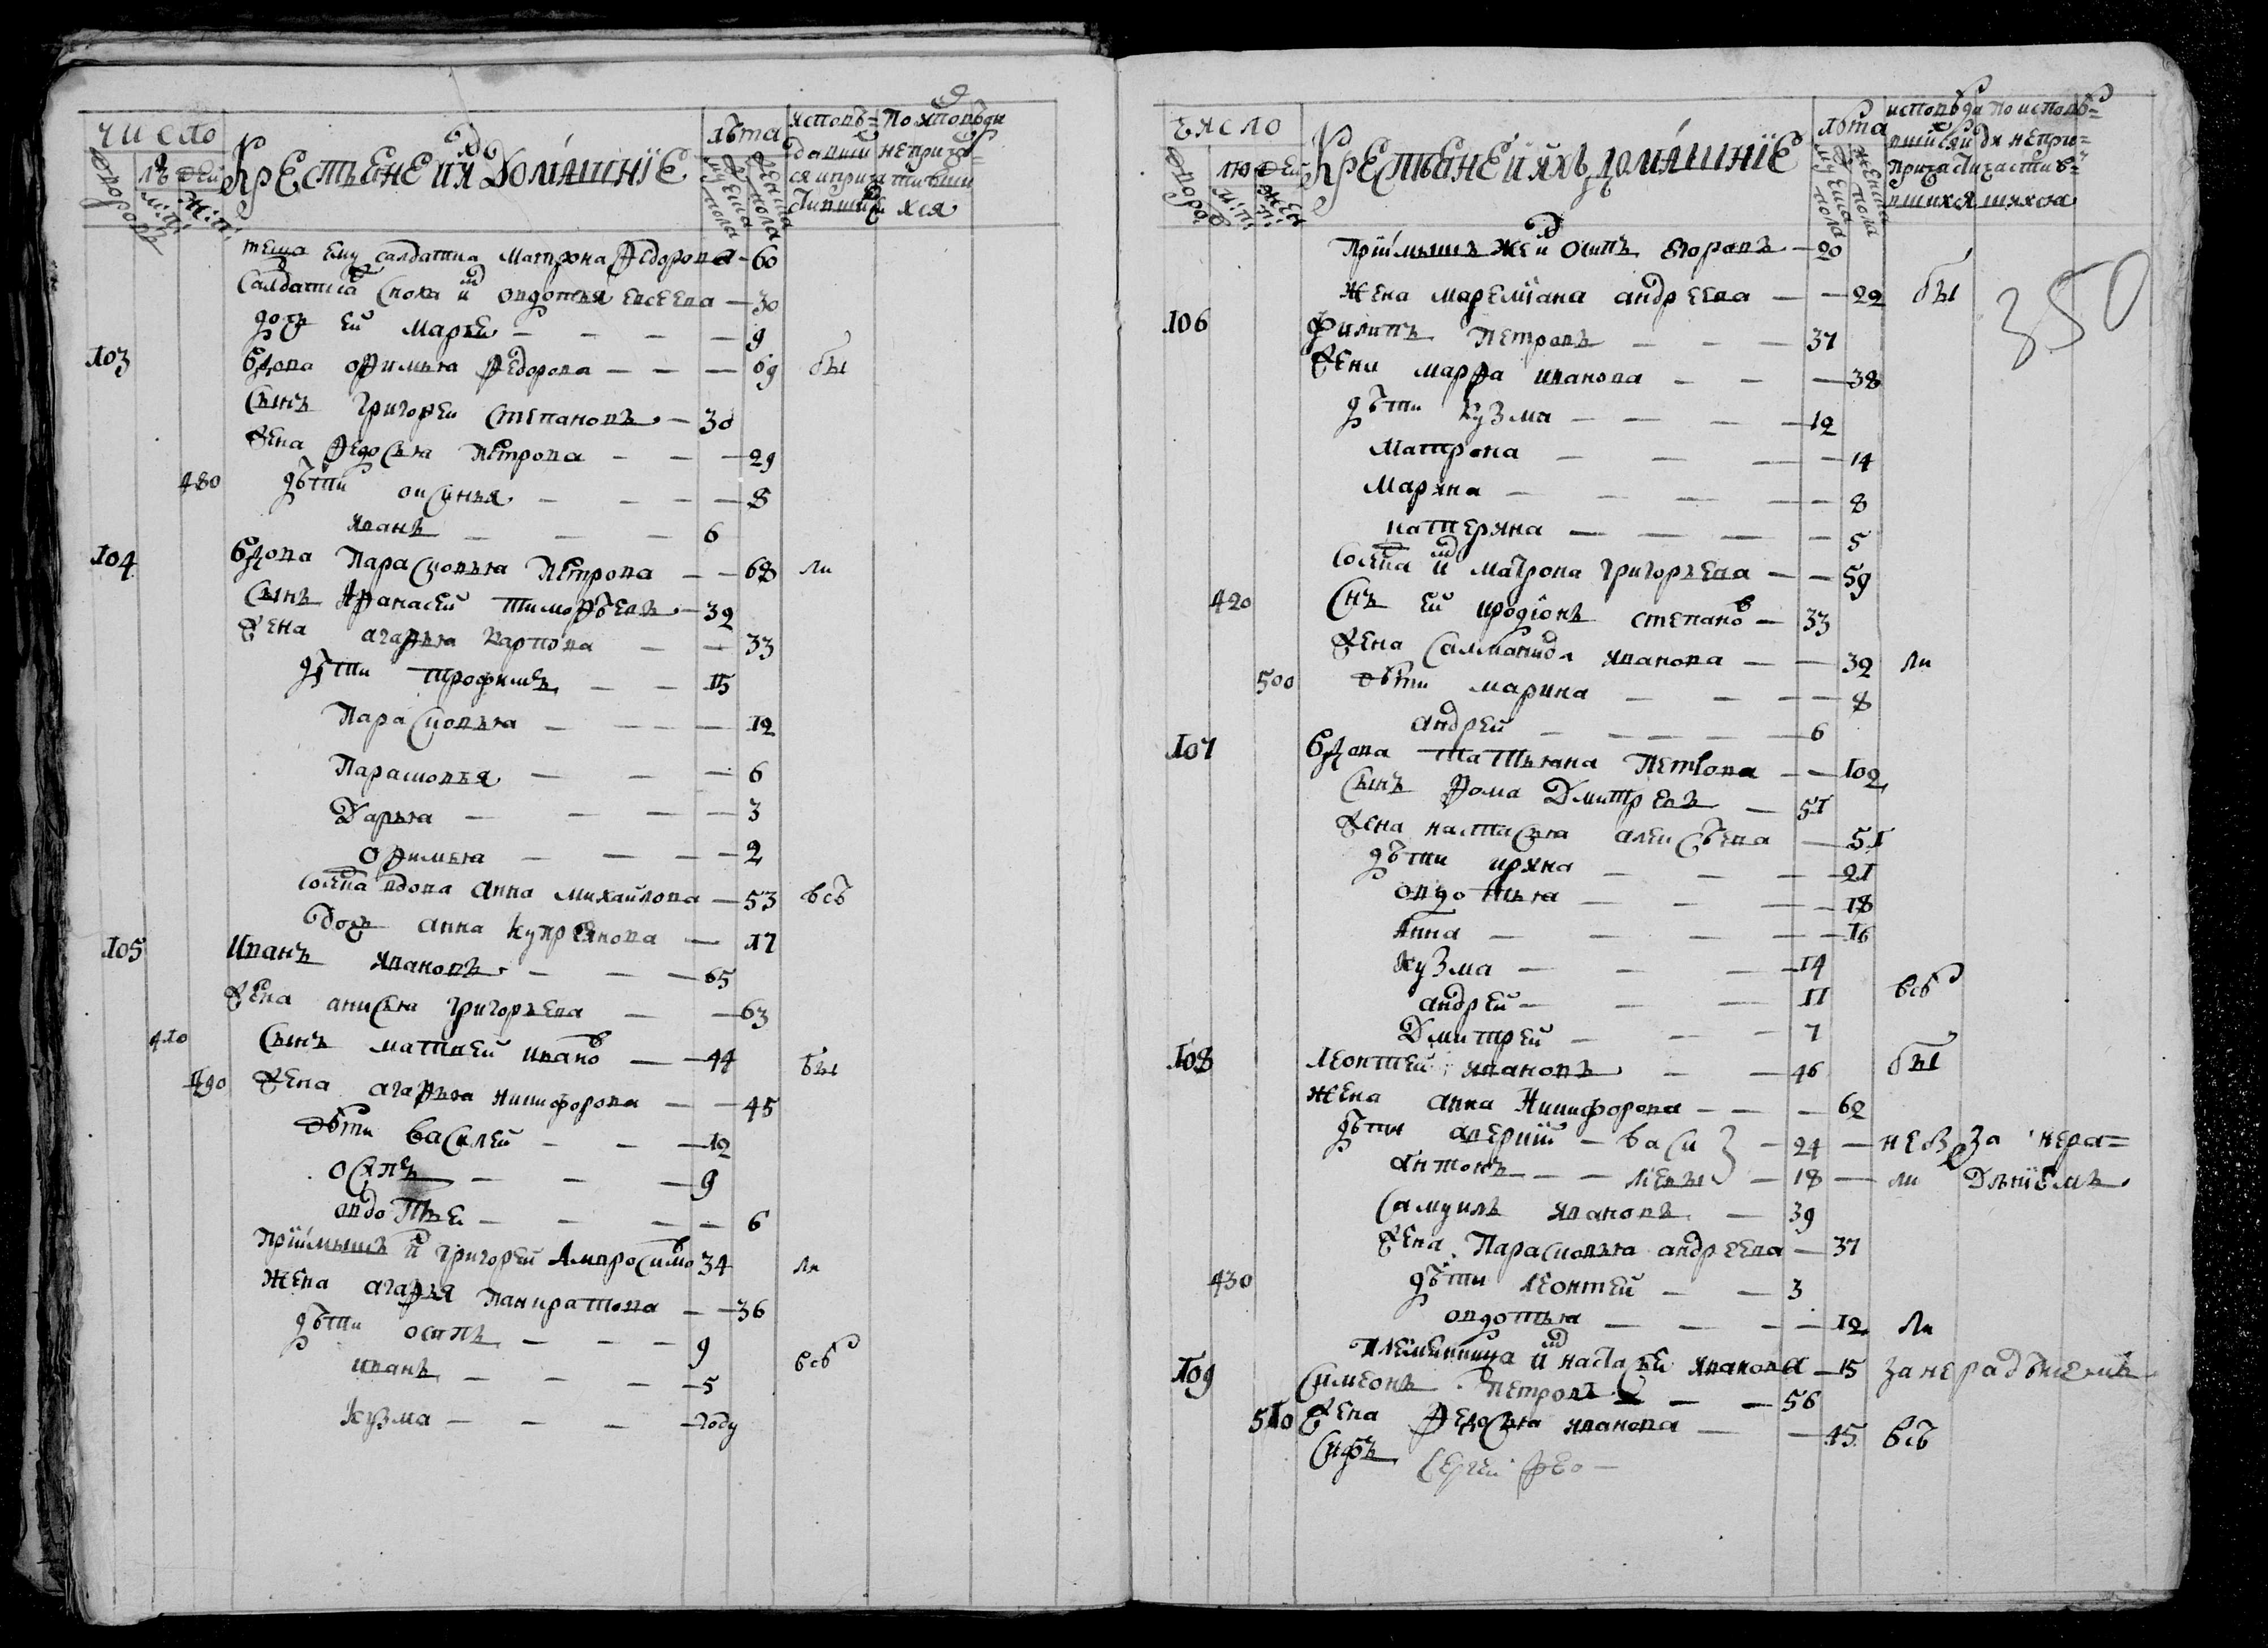 число
дворовъ
людей
м: п:
ж: п:
Крестьяне и их домашние
лѣта
мужеска пола
женска пола
исповѣдавшиися и причастившиися
по исповѣди непричастившихся
теща ему салдатка Матрона Федорова — 60
Салдатка сноха их овдотья евсеева — 30
дочь ей Марья — 9
103 вдова офимья Федорова — 69 бы
сынъ григорей степановъ — 30
жена Федосья Петрова — 29
480 дѣти оксинья — 8
иванъ — 6
104 вдова Парасковья Петрова — 68 ли
сынъ Афанасей тимофѣевъ — 32
жена агафья карпова — 33
дѣти трофимъ — 15
Парасковья — 12
Парасковья — 6
Дарья — 3
офимья — 2
вдова анна михайлова — 53 всѣ
дочь анна купреянова — 17
105 иванъ ивановъ — 65
жена анисья григорьева — 63
410 сынъ матвей ивано — 44 бы
490 жена агафья никифорова — 45
дѣти василей — 12
осипъ — 9
овдотья — 6
Приимышъ их григорей Амвросимо 34 ли
жена агафья Панкратова — 36
дѣти осипъ — 9
иванъ — 5 всѣ
кузма — году
350
число
дворовъ
людей
м: п:
ж: п:
Крестьяне и ихъ домашние
лѣта
мужеска пола
женска пола
исповѣдавшиися и причастившихся
по исповѣди непричастившихся
Приимышъ же их осипъ егоровъ — 20
жена маремиана андреева — 22 бы
106 филипъ Петровъ — 37
жена марфа иванова — 38
дѣти кузма — 12
Матрона — 14
Марина — 8
катерина — 5
их матрона григорьева — 59
420 снъ ей иродионъ степано — 33
жена саламанида иванова — 32 ли
500 дѣти марина — 8
андрей — 6
107 вдова татьяна Петрова — 102
сынъ фома Дмитревъ — 51
жена настасья алексѣева — 51
дѣти ирина — 21
овдотья — 18
Анна — 16
кузма — 14
андрей — 11 всѣ
Дмитрей — 7
108 леонтей ивановъ — 46 бы
жена анна Никифорова — 62
дѣти аверкий — васи 24 — не вз за нера=
Антонъ — левы 18 — ли дѣниемъ
самуилъ ивановъ — 39
жена Парасковья андреева — 37
430 дѣти леонтей — 3
овдотья — 12 ли
племянница их настасья иванова — 15 за нерадѣниемъ
109 симеонъ петровъ — 56
510 жена федосья иванова — 45 всѣ
сергей фео —